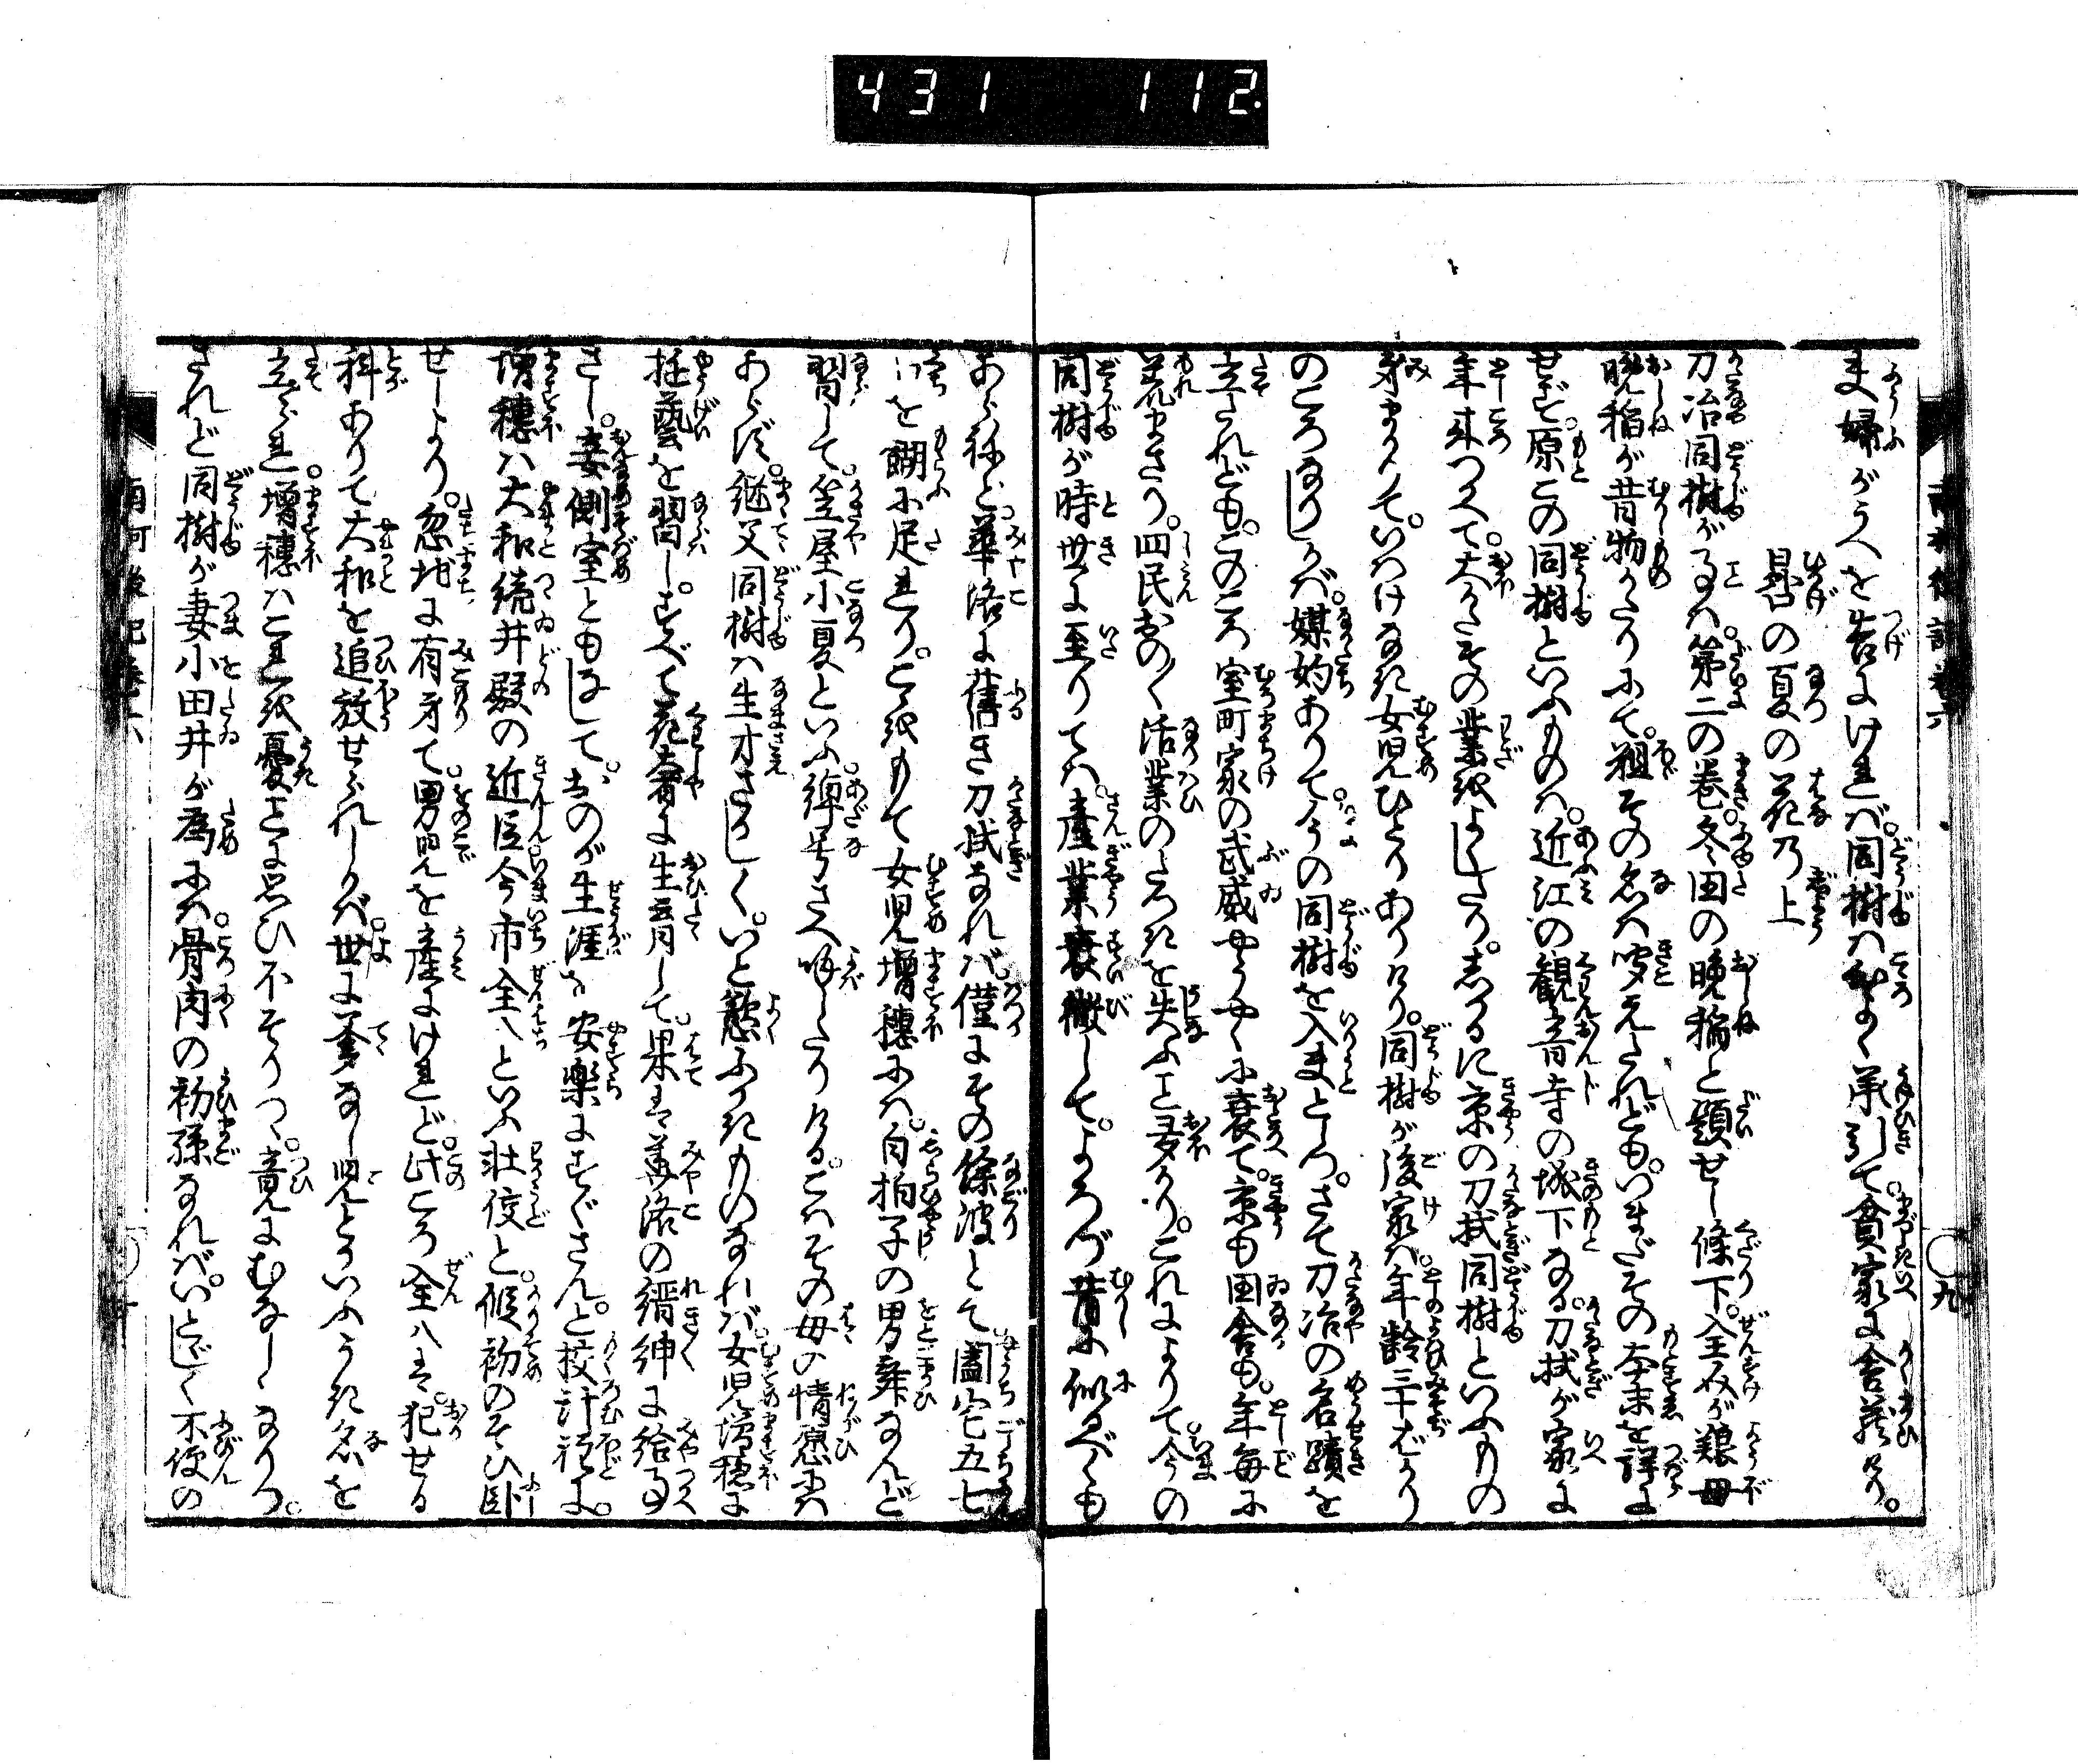 431 112.
夫婦がうへを告にければ。同樹は和よく承引て。貧家に舎藏けり。
晷の夏の花乃上
刀冶同樹が事は。第二の巻。冬田の晩稲と題せし條下。全奴が粮母
晩稲が昔物がたりにて。粗その名は聞えたれども。いまだその本末を詳に
せず。原この同樹といふものは。近江の観音寺の城下なる。刀拭が家に
年来つかへて。大かたその業をよくしたり。志かるに京の刀拭同樹といふもの
身まかりて。いはけなき女児ひとりありけり。同樹が後家は年齢三十ばかり
のころなりしかば。媒妁ありて。この同樹を入夫としつ。さて刀冶の名蹟を
立されども。このころ室町家の武威やうやくに衰て。京も田舎も。年毎に
荒まさり。四民おの／＼活業のたつきを失ふこと多かり。これによりて。今の
同樹が時世に至りては。産業衰微して。よろづ昔に似るべくも
あらねど。華洛に舊き刀拭なれば。僅にその餘波とて圖宅五七
口を餬に足れり。これをもて女児増穂には。白拍子の男舞なんど
習して。笠屋小夏といふ。綽号さへ呼したりける。こはその母の情愿には
あらず。継父同樹は生才さかしく。いと慾ふかきものなれば。女児増穂に
技藝を習し。すべて花奢に生育して。果は華洛の縉紳に給事
さし。妾側室ともなして。おのが生涯を安樂にすぐさんと。校計程に。
増穂は大和続井殿の近臣。今市全八といふ壮佼と。假初のそひ臥
せしより。忽地に有身て。男児を産にけれど。此ころ全八は。犯せる
科ありて大和を追放せられしかば。世に爹なし児とかいふうき名を
立られ。増穂はこれを憂ことに思ひ不そりつゝ。竟にむなしくなりつ。
されど同樹が妻小田井が為には。骨肉の初孫なれば。いとゞしく不便の